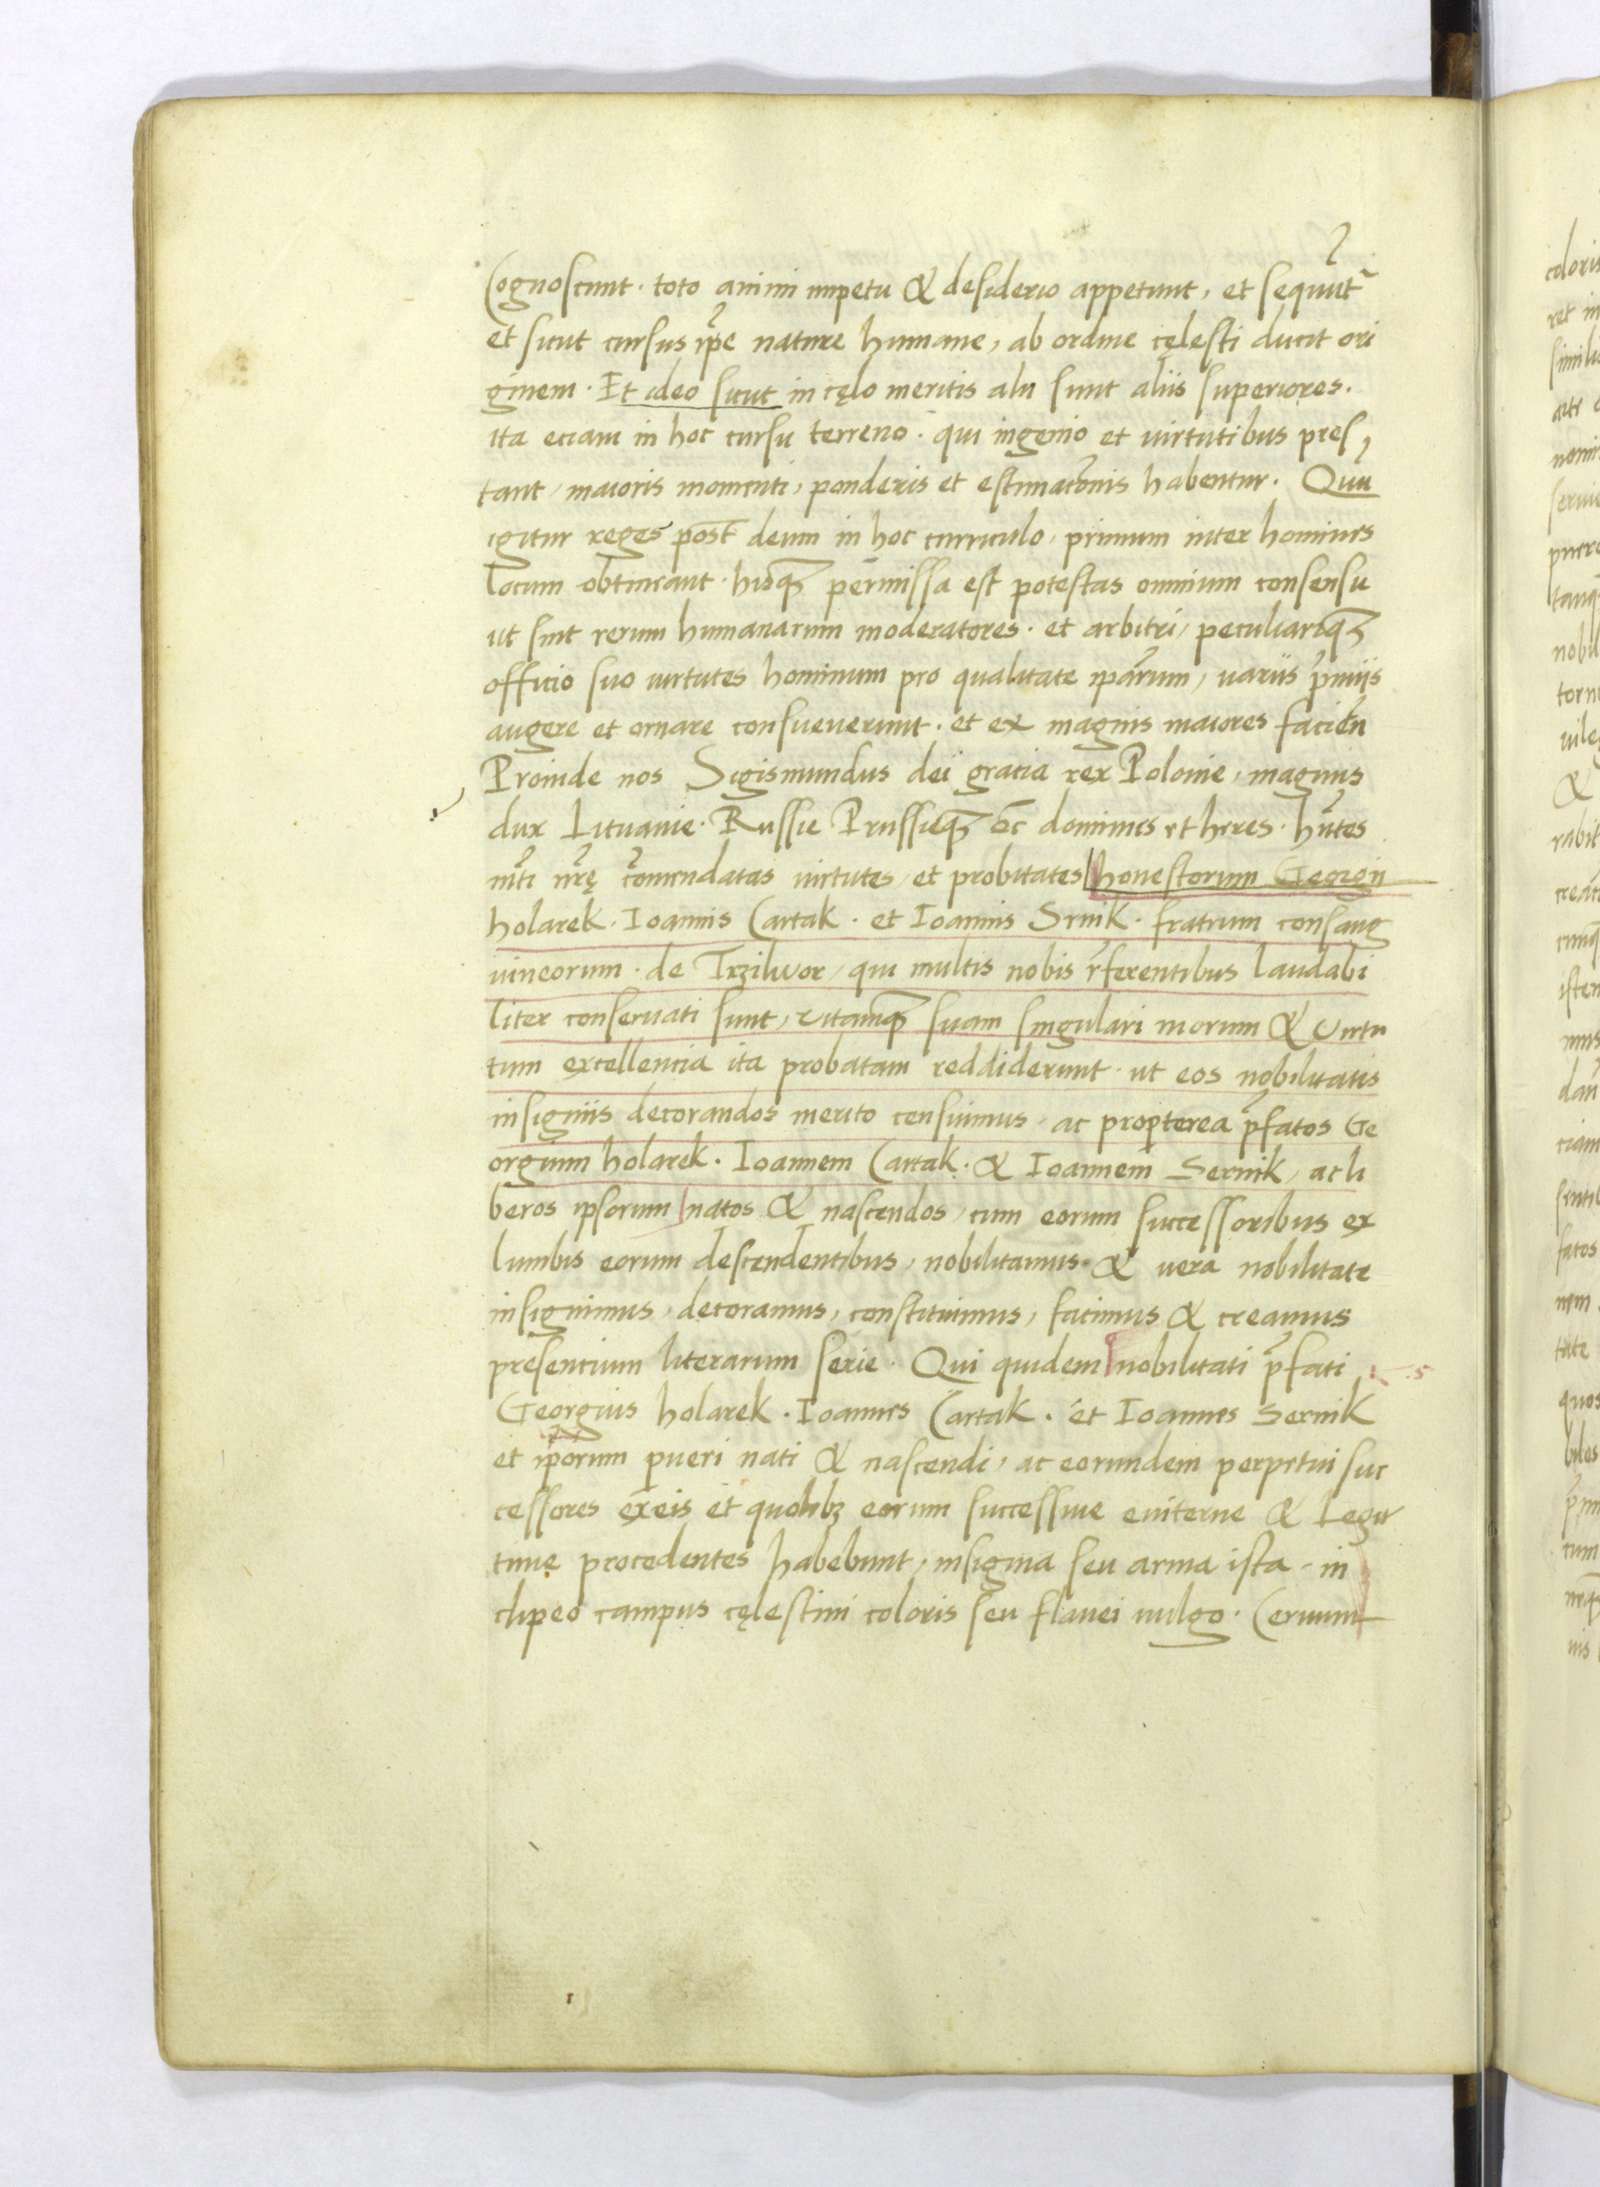 Cognoscunt · toto animi impetu & desiderio appetunt, et sequūt͞
et sicut cursus ip̄e nature humane, ab ordine cęlesti ducit ori
ginem · Et ideo sicut in cęlo meritis alii sunt aliis superiores.
ita eciam in hoc cursu terreno · qui ingenio et uirtutibus pres,
tant, maioris momenti, ponderis et estimac̄onis habentur. Quū
igitur reges post deum in hoc curriculo, primum inter homines
locum obtineant · hisq̨ permissa est potestas omnium consensu
ut sint rerum humanarum moderatores · et arbitri, peculiariq̨
officio suo uirtutes hominum pro qualitate ip̄arum, uariis p̄miis
augere et ornare consueuerunt · et ex magnis maiores faciēn
Proinde nos Sigismundus dei gracia rex Polonie, magnus
dux Lituanie · Russie Prussieq̨ &c dominus et heres · hn̄tes
mt̄i nr̄ę c̄omendatas uirtutes, et probitates honestorum Georgii
holarek · Ioannis Cartak · et Ioannis Srnik · fratrum consang
uineorum · de Trzilwor, qui multis nobis r̄ferentibus laudabi
liter conseruati sunt, uitamq̨ suam singulari morum & Uirtu
tum excellencia ita probatam reddiderunt · ut eos nobilitatis
insigniis decorandos merito censuimus, ac propterea p̄fatos Ge
orgium holarek · Ioannem Cartak · & Ioannem Sernik, ac li
beros ipsorum natos & nascendos, cum eorum successoribus ex
lumbis eorum descendentibus, nobilitamus · & uera nobilitate
insignimus, decoramus, constituimus, facimus & creamus
presencium literarum serie · Qui quidem nobilitati p̄fati
Georgius holarek · Ioannes Cartak · et Ioannes Sernik
et ip̄orum pueri nati & nascendi, ac eorundem perpetui suc
cessores ex eis et quolibꝫ eorum successiue euiterne & Legit
timę procedentes habebunt, insignia seu arma ista · in
clipeo campus cęlestini coloris seu flauei uulgo · Ceruum